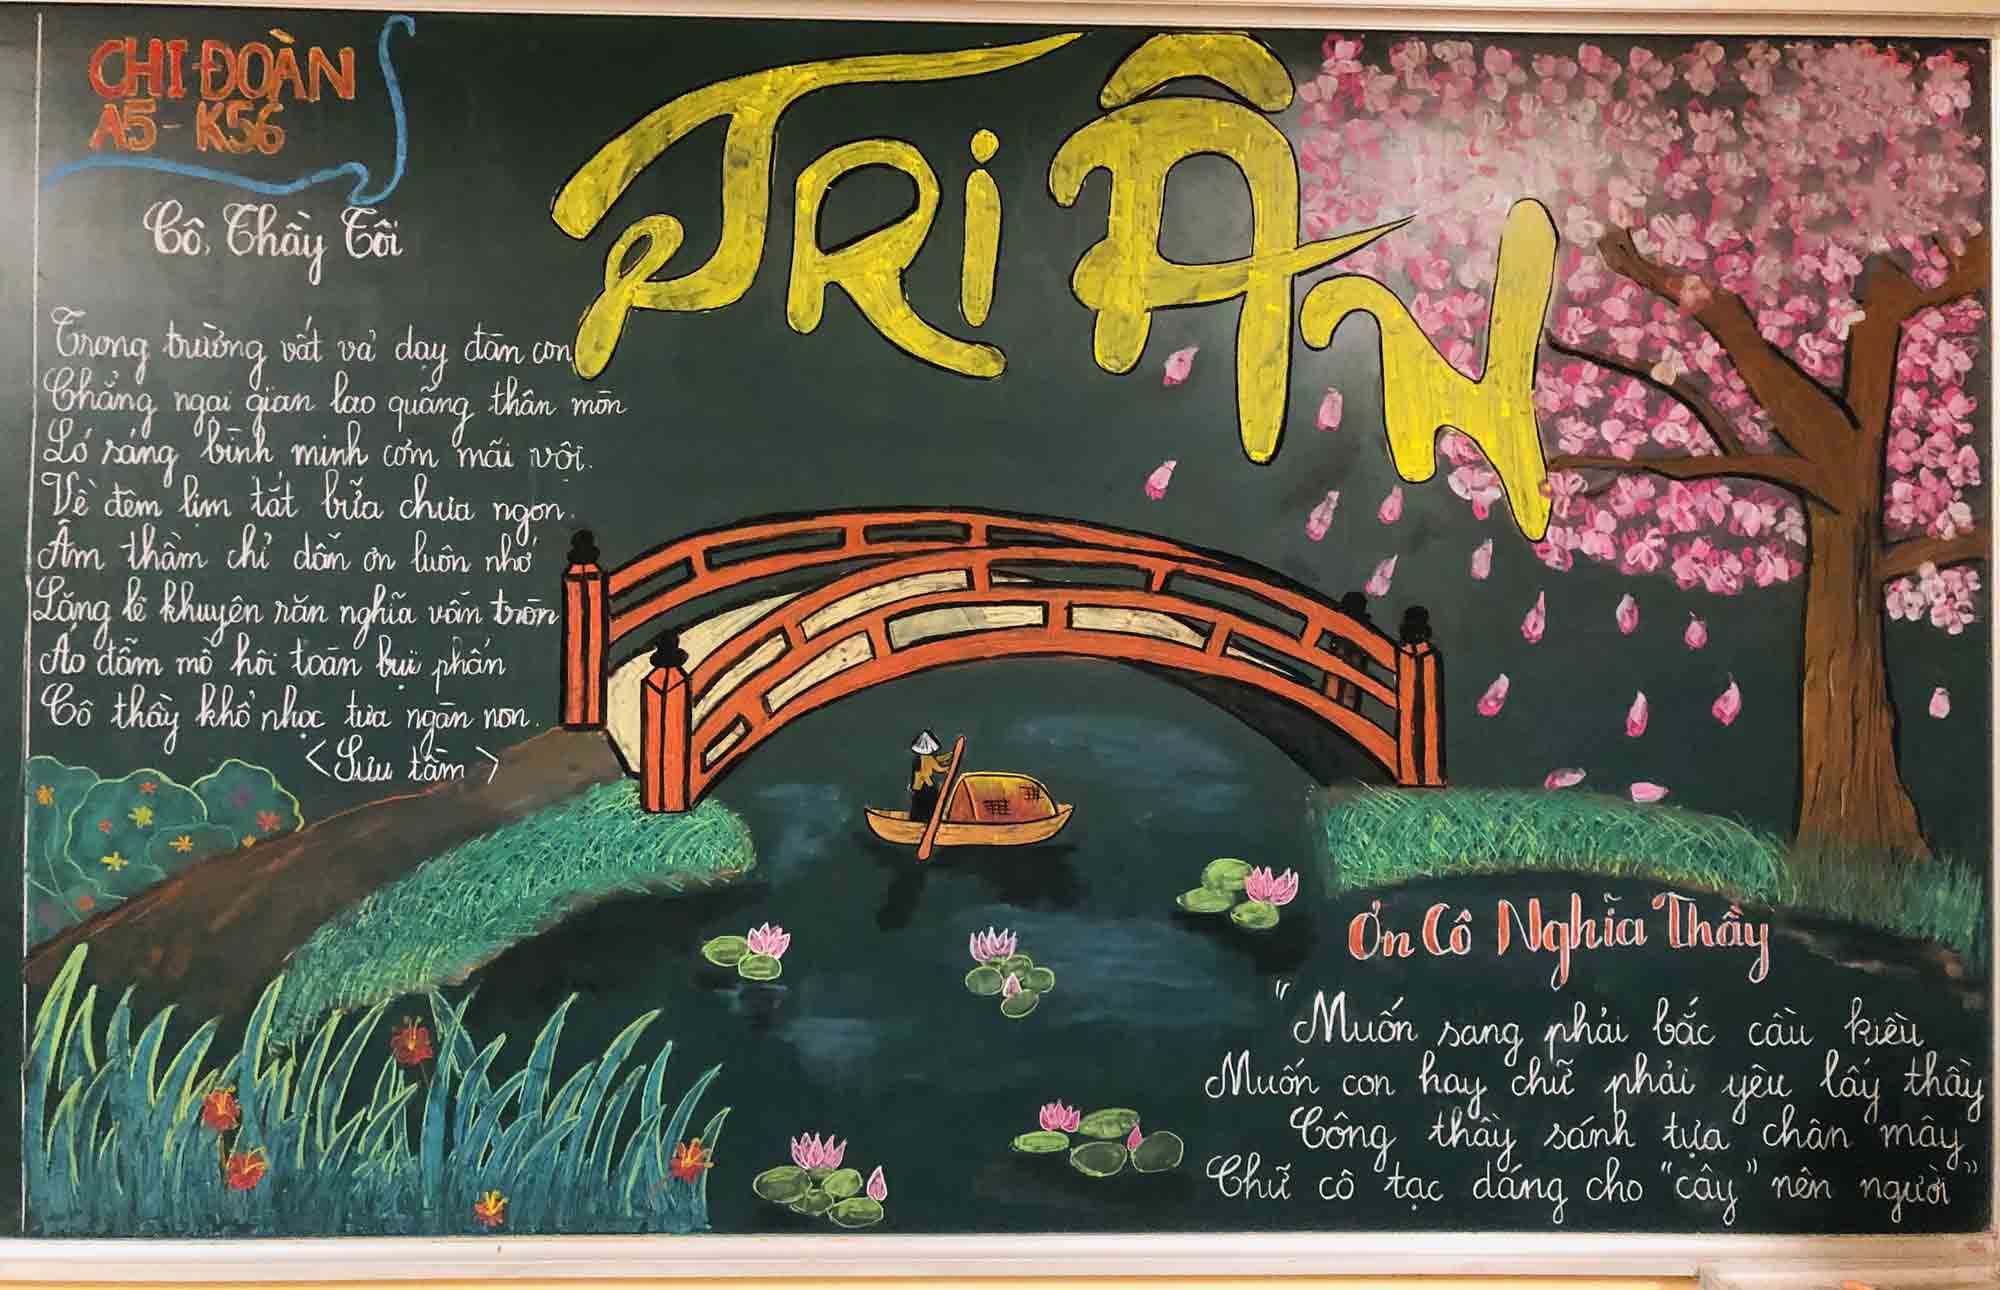 CHI ĐOÀN
A5 - K56
TRI ÂN
Cô, Thầy Tôi
Trong trường vất vả dạy đàn con
Chẳng ngại gian lao quãng thân mòn
Ló sáng bình minh cơm mãi vội.
Về đêm lịm tắt bữa chưa ngon.
Âm thầm chỉ dẫn ơn luôn nhớ
Lặng lẽ khuyên răn nghĩa vẫn tròn
Áo đẫm mồ hôi toàn bụi phấn
Cô thầy khổ nhọc tựa ngàn non.
<Sưu tầm>
Ơn Cô Nghĩa Thầy
"Muốn sang phải bắc cầu kiều
Muốn con hay chữ phải yêu lấy thầy
Công thầy sánh tựa chân mây
Chữ cô tạc dáng cho "cây" nên người"